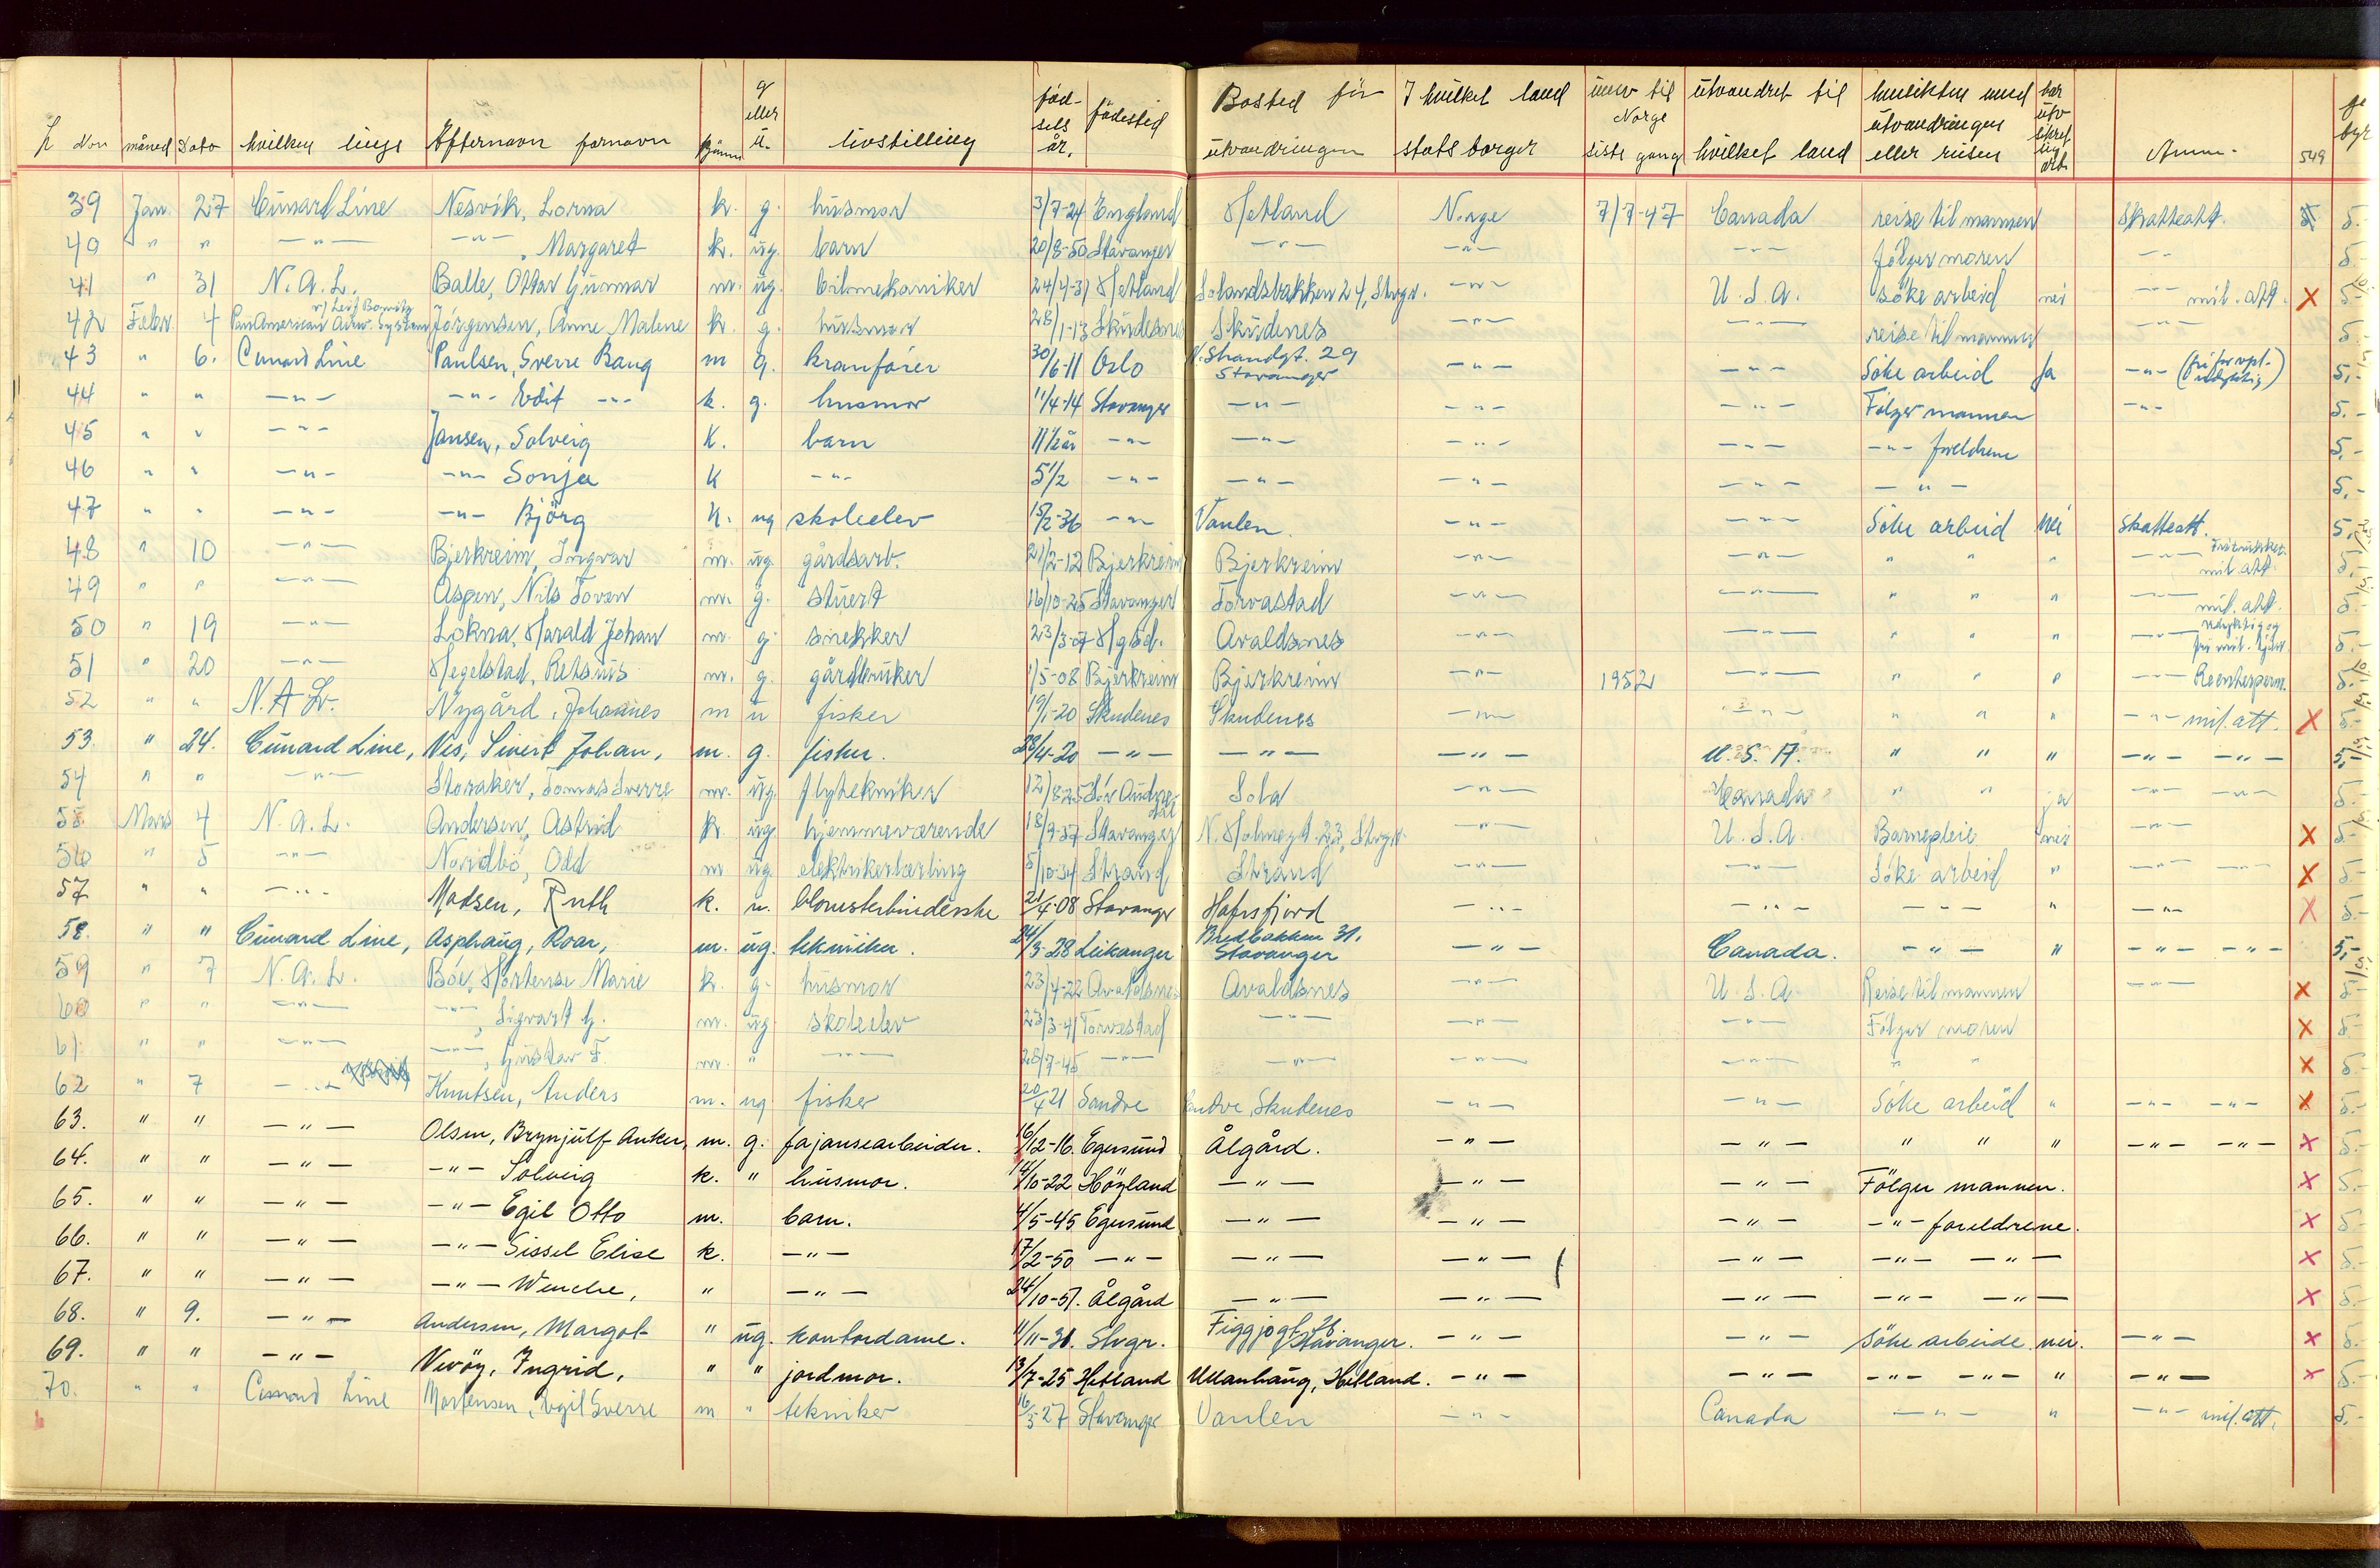 Nor måned Dato hvilken linje Efternavn fornavn kjönn g eller u. livsstilling föd-sels år. födested Bosted för utvandringen I hvilket land stats borger innv til Norge siste gang utvandret til hvilket land hensikten med utvandringen eller reisen har utv sikret sig arb. Anm. 549
39 Jan 27 Cunard Line Nesvik, Lorna k. g. husmor 3/7-24 England Hetland Norge 7/7-47 Canada reise til mannen Skatteatt. 5.-
40 " " -"- -"- , Margaret k. ug. barn 20/8-50 Stavanger -"- -"- -"- fölger moren -"- 5.-
41 " 31 N.A.L. Balle, Ottar Gunnar m. ug. bilmekaniker 24/4-31 Hetland Solandsbakken 24, Stvgr. -"- U.S.A. söke arbeid nei -"- mil. att. X 5.-
42 Febr 4 Pan American Airw. System v/ Leif Bowitz Jörgensen, Anne Malene k. g. husmor 28/1-13 Skudesnes Skudenes -"- -"- reise til mannen -"- 5.-
43 " 6. Cunard Line Paulsen, Sverre Bang m g. kranförer 30/6-11 Oslo N. Strandgt. 29 Stavanger -"- -"- Söke arbeid Ja -"- 5,-
44 " " -"- -"- Edit -"- k. g. husmor 11/4-14 Stavanger -"- -"- -"- Fölger mannen -"- 5.-
45 " " -"- Jansen, Solveig K. barn 11 1/2 år -"- -"- -"- -"- -"- foreldrene 5.-
46 " " -"- -"- Sonja K -"- 5 1/2 -"- -"- -"- -"- -"- 5.-
47 " " -"- -"- Björg K. ug skoleelev 15/2-36 -"- Vaulen. -"- -"- Söke arbeid nei Skatteatt. 5.-
48 " 10 -"- Bjerkreim, Ingvar m. ug. gårdsarb. 21/2-12 Bjerkreim Bjerkreim -"- -"- " " " -"- mil. att. 5.-
49 " " -"- Aspen, Nils Tovan m. g. stuert 16/10-25 Stavanger Torvastad -"- -"- " " " -"- mil. att. 5.-
50 " 19 -"- Lokna, Harald Johan m. g. snekker 23/3-07 Hgsd. Avaldsnes -"- -"- " " " -"- udyktig og fri mil. tj. 5.-
51 " 20 -"- Hegelstad, Retsius m. g. gårdbruker 1/5-08 Bjerkreim Bjerkreim -"- 1952 -"- " " " -"- 5.-
52 " " N.A.L. Nygård, Johannes m u fisker 19/1-20 Skudenes Skudenes -"- -"- " " " -"- mil. att. X 5.-
53. " 24. Cunard Line, Nes, Sivert Johan, m. g. fisker. 28/4-20 -"- -"- -"- U.S.A. " " " -"- -"- 5,-
54 " " -"- Storaker, Tomas Sverre m. ug. flytekniker 12/8-25 Sör Audnedal Sola -"- Canada " " ja -"- -"- 5.-
55. Mars 4 N.A.L. Andersen, Astrid k. ug. hjemmeværende 18/9-37 Stavanger N. Holmegt. 23, Stvgr. -"- U.S.A. Barnepleie nei -"- X 5.-
56 " 5 -"- Nordbö, Odd m ug. elektrikerlærling 5/10-34 Strand Strand -"- -"- Söke arbeid " -"- -"- X 5.-
57 " " -"- Madsen, Ruth k. u. blomsterbinderske 21/4-08 Stavanger Hafrsfjord -"- -"- -"- " -"- X 5.-
58. " " Cunard Line, Asphaug, Roar, m. ug. tekniker. 24/3-28 Leikanger Bredbakken 31. Stavanger -"- Canada. -"- " -"- -"- 5,-
59 " 7 N.A.L. Böe, Hortense Marie k. g. husmor 23/4-22 Avaldsnes Avaldsnes -"- U.S.A. Reise til mannen -"- X 5.-
60 " " -"- -"- , Sigvart G. m. ug. skoleelev 23/3-41 Torvestad -"- -"- -"- Fölger moren X 5.-
61 " " -"- -"- , Gustav F. m. " -"- 28/7-45 -"- -"- -"- -"- " " X 5.-
62 " 7 -"- Knutsen, Anders m. ug fisker 20/4 21 Sandve Sandve, Skudenes -"- -"- Söke arbeid " -"- -"- X 5.-
63. " " -"- Olsen, Brynjulf Anker, m. g. fajansearbeider. 16/12-16. Egersund Ålgård. -"- -"- " " " -"- -"- X 5.-
64. " " -"- -"- Solveig k. " husmor. 14/10-22 Höyland -"- -"- -"- Fölger mannen. X 5.-
65. " " -"- -"- Egil Otto m. barn. 4/5-45 Egersund -"- -"- -"- -"- foreldrene. X 5.-
66. " " -"- -"- Sissel Elise k. -"- 17/2-50 -"- -"- -"- -"- -"- -"- X 5.-
67. " " -"- -"- Wenche, " -"- 24/10-51. Ålgård -"- -"- -"- -"- -"- X 5.-
68. " 9. -"- Andersen, Margot " ug. kontordame. 11/11-31. Stvgr. Figgjogt. Stavanger. -"- -"- Söke arbeide. nei. -"- X 5.-
69. " " -"- Nevöy, Ingrid, " " jordmor. 13/7-25 Hetland Ullanhaug, Hetland. -"- -"- -"- -"- " -"- X 5.-
70. " " Cunard Line Mortensen, Egil Sverre m " tekniker 16/3-27 Stavanger Vaulen -"- Canada -"- " -"- mil. att. 5.-